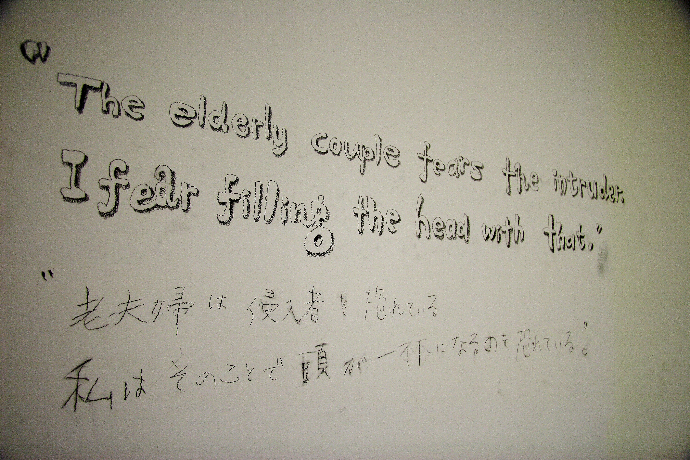 "The elderly couple fears the intruder.
I fear filling the head with that."
"老夫婦は 侵入者を恐れている
私は そのことで 頭が一杯になるのを恐れている。"